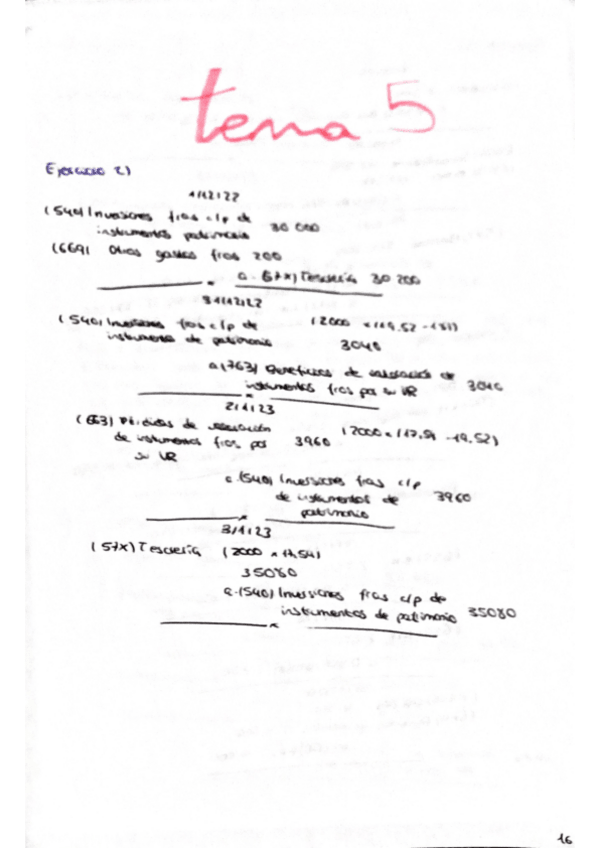 tema 5
Ejercicio 2)
1/12/22
(540) Inversiones fras c/p de
instrumentos patrimonio 30 000
(669) Otros gastos fros 200
a (57x) Tesorería 30 200
31/12/22
(540) Inversiones fras c/p de (2000 x (19,52 -
instrumentos de patrimonio 3040
a (763) Beneficios de valoración de
instrumentos fros por su VR 3040
2/1/23
(663) Pérdidas de valoración (2000 x (17,54 - 19,52)
de instrumentos fros por 3960
su VR
a (540) Inversiones fras c/p
de instrumentos de 3960
patrimonio
3/1/23
(57x) Tesorería (2000 x 17,54)
35080
a (540) Inversiones fras c/p de
instrumentos de patrimonio 35080
16